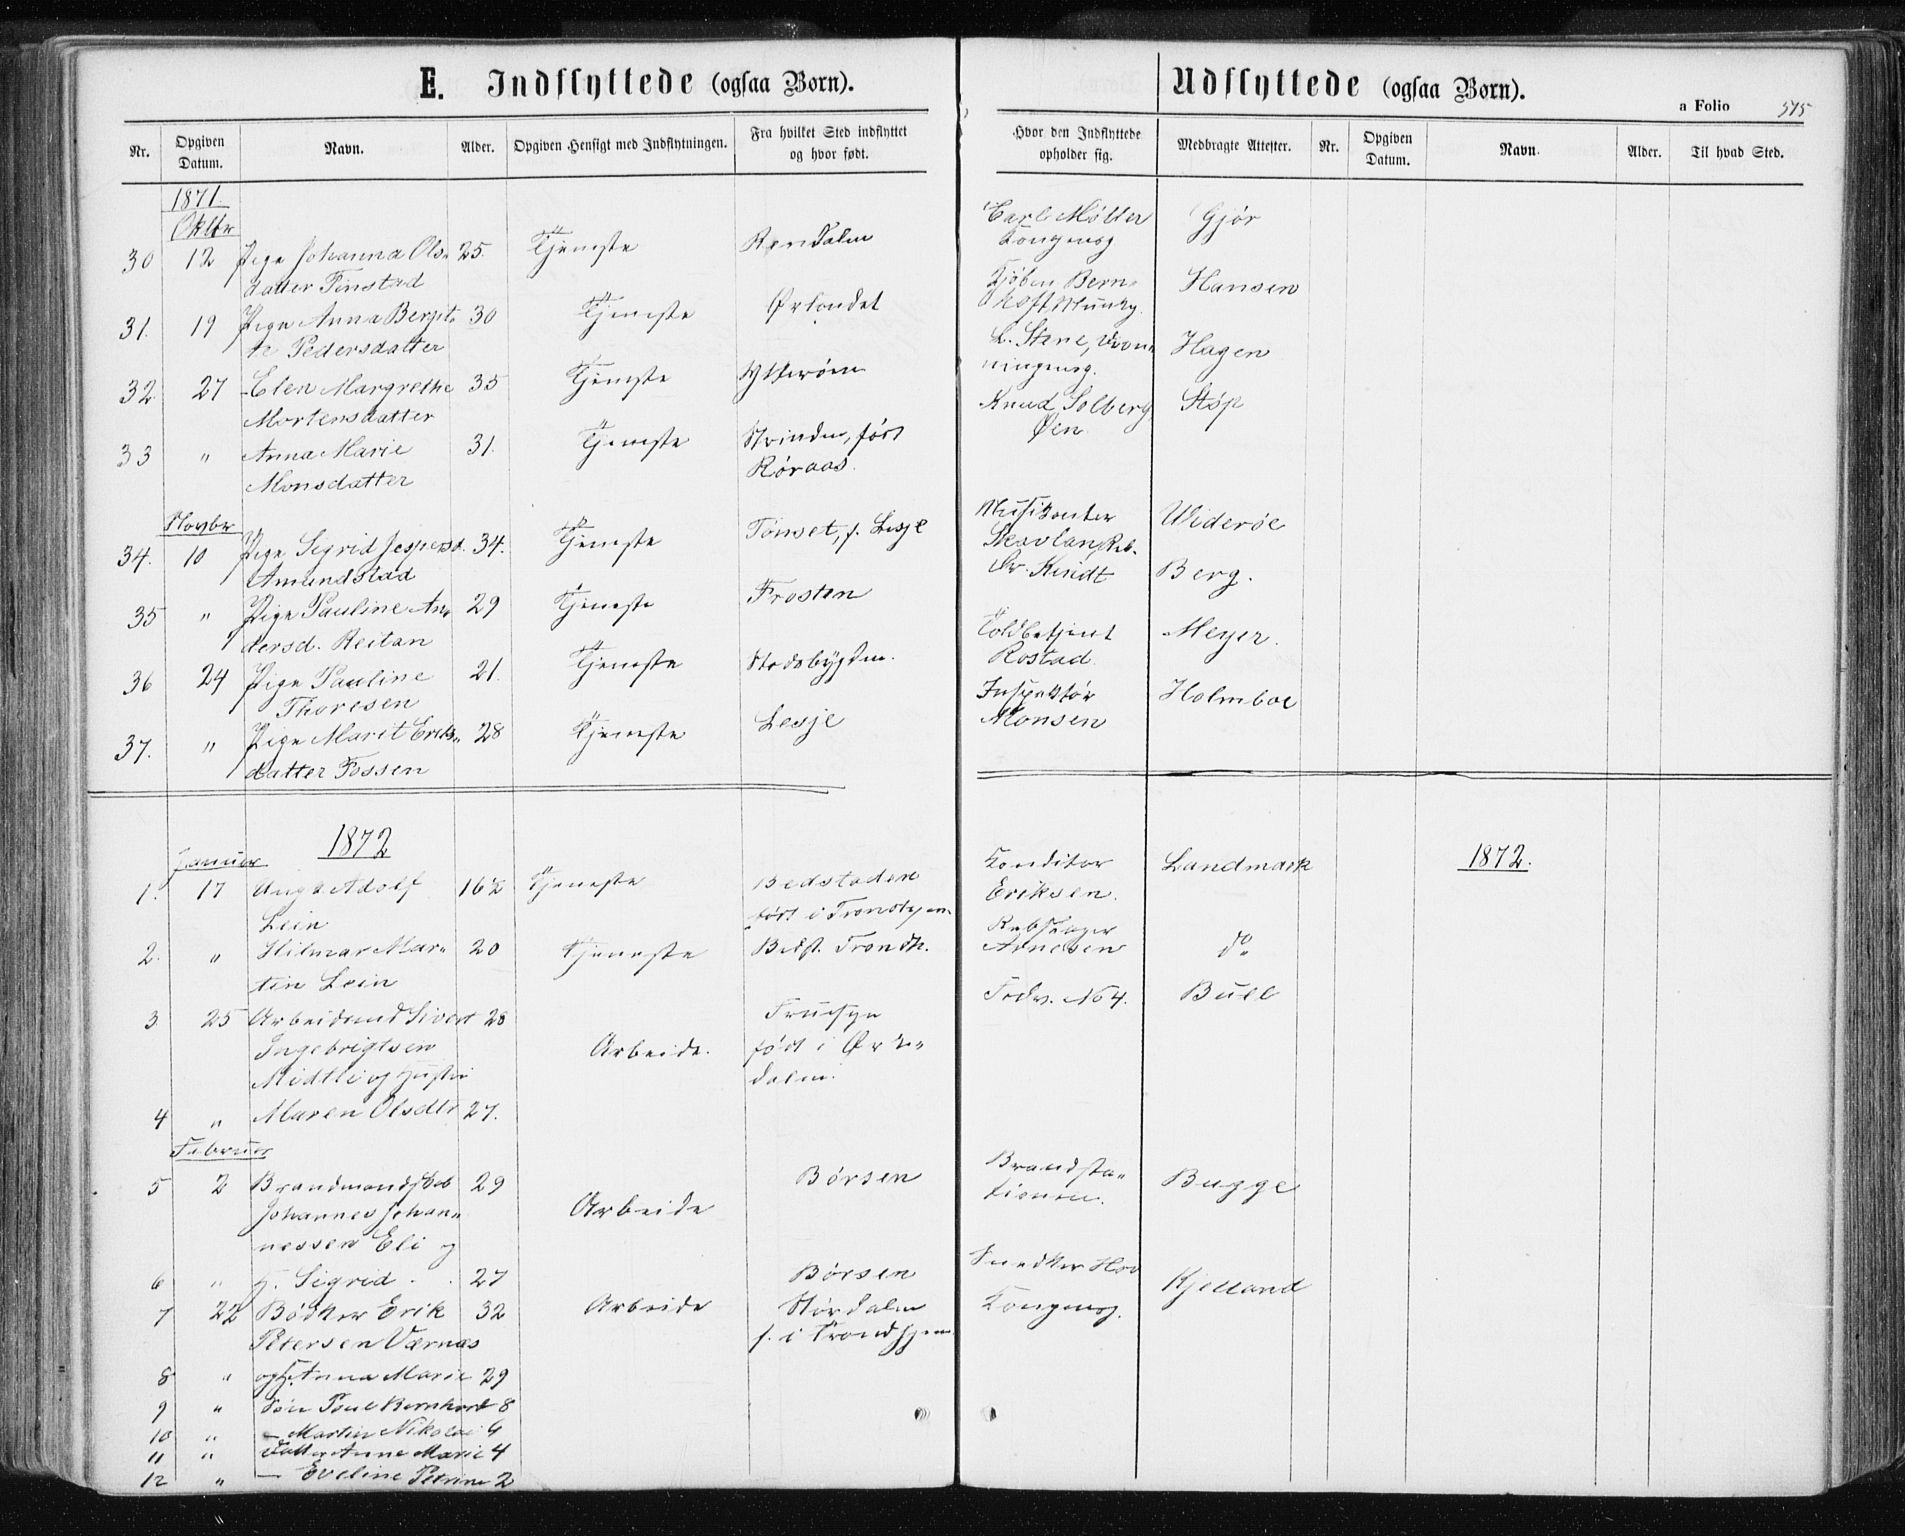 E. Indflyttede (ogsaa Børn).
Nr. Opgiven Datum. Navn. Alder. Opgiven Hensigt med Indflytningen. Fra hvilket Sted indflyttet og hvor født.
1871
Oktbr
30 12 Pige Johanna Ols- 25. Tjeneste Rendalen
datter Finstad
31. 19 Pige Anna Berjit- 30 Tjeneste Ørlandet
te Pedersdatter
32 27 Elen Margrethe 35 Tjeneste Ytterøen
Mortensdatter
33 " Anna Marie 31. Tjeneste Strinden, født
Monsdatter Røraas.
Novbr
34. 10 Pige Sigrid Jespersd. 34. Tjeneste Tønset, f. Lesje
Amundstad
35 " Pige Pauline An- 29 Tjeneste Frosten
dersd. Reitan
36 24 Pige Pauline 21. Tjeneste Stadsbygden.
Thoresen
37. " Pige Marit Eriks- 28 Tjeneste Lesje
datter Fossen
1872
Januar
1. 17 Adolf 16½ Tjeneste Bedstaden
Lein født i Trondhjem
2. " Hilmar Mar- 20 Tjeneste Bedst. Trondh.
tin Lein
3 25 Arbeidsmd Sivert 28 Arbeide.
Ingebrigtsen født i Ørke-
Midtli og Hustru dalen.
4 " Maren Olsdtr 27.
Februar
5 2 Brandmandskab 29 Arbeide Børsen
Johannes Johan-
nessen Eli og
6 " H. Sigrid 27 Børsen
7 22 Bødker Erik 32 Arbeide Størdalen
Petersen Værnæs f. i Trondhjem
8 " og H. Anna Marie 29
9 " Søn Poul Bernhard 8
10 " — Martin Nikolai 6
11 " Datter Anne Marie 4
12 " — Eveline Petrine 2
Udflyttede (ogsaa Børn).
a Folio 575
Hvor den Indflyttede opholder sig. Medbragte Attester. Nr. Opgiven Datum. Navn. Alder. Til hvad Sted.
Carl Møller Gjør
Kongensg
Kjøbm Bern- Hansen
hoft Munkg.
L. Stene, Dron- Hagen
ningensg.
Knud Solberg Støp
Øen.
Musikanter Widerøe
Skavlan, Reb.
Berg.
Toldbetjent Meyer.
Rostad.
Inspektør Holmboe
Monsen
1872.
Konditor Landmark
Eriksen.
Rebslager
Arnesen do
No 4. Bull
Brandsta- Bugge
tionen.
Snedker Hov Kjelland
Kongensg.